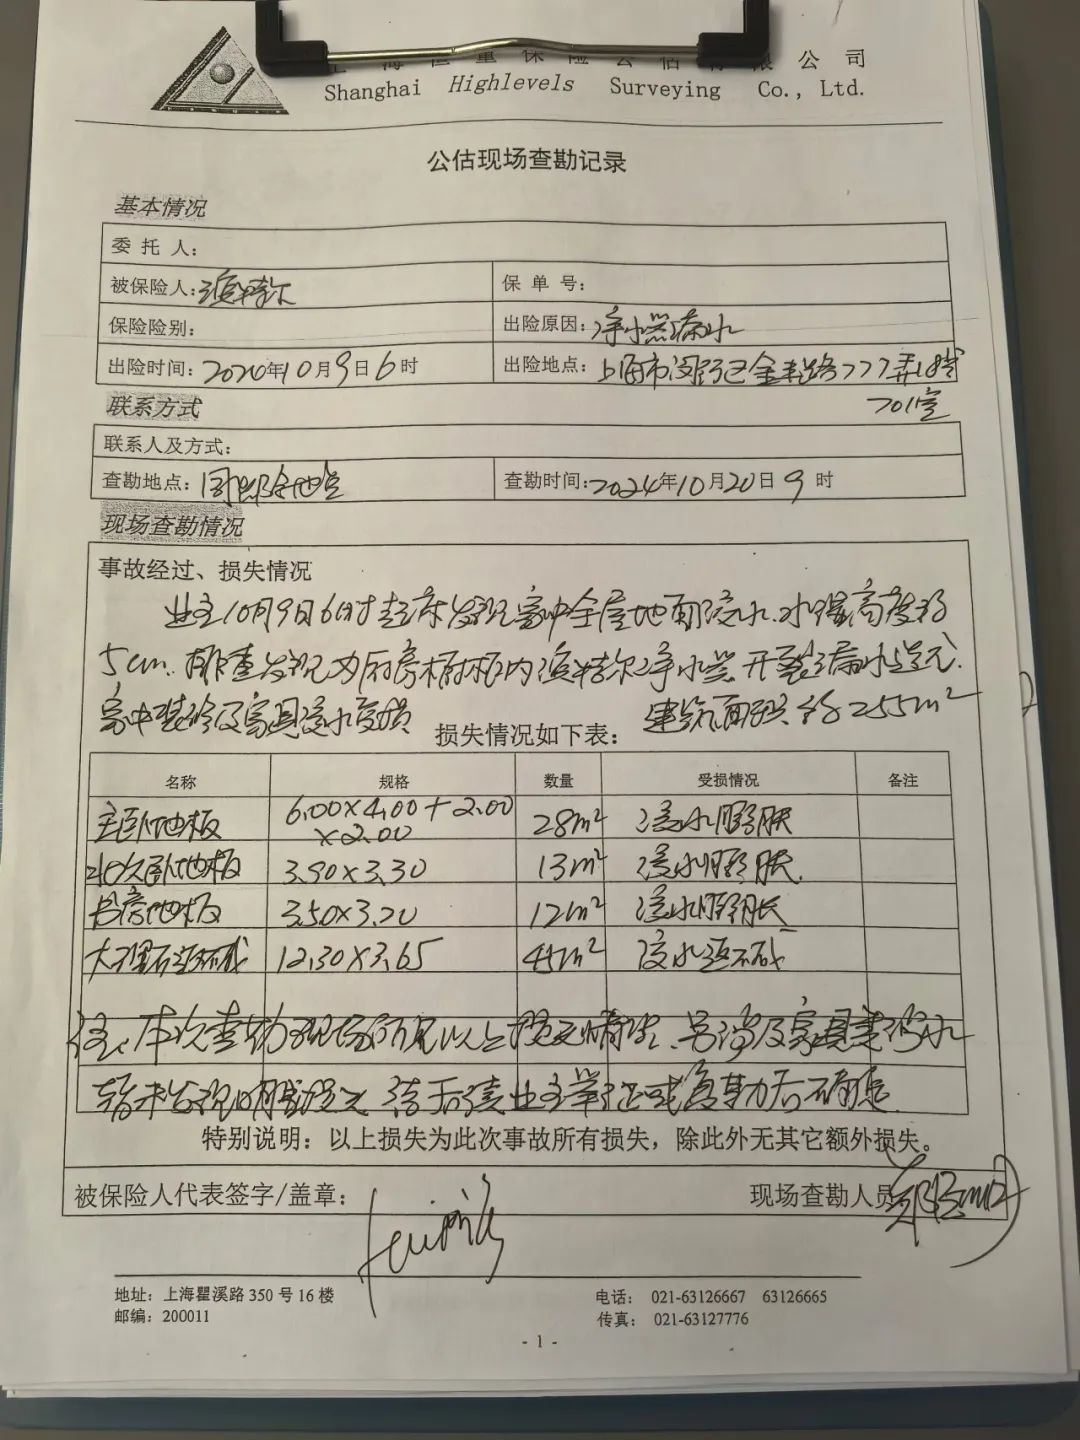 上海恒量保险公估有限公司
Shanghai Highlevels Surveying Co., Ltd.
公估现场查勘记录
基本情况
委 托 人：
被保险人：滨特尔 保 单 号：
保险险别： 出险原因：净水器漏水
出险时间：2024年10月9日6时 出险地点：上海市闵行区金丰路777弄18号
701室
联系方式
联系人及方式：
查勘地点：同出险地点 查勘时间：2024年10月20日9时
现场查勘情况
事故经过、损失情况
业主10月9日6时起床发现家中全屋地面浸水，水深高度约
5cm，排查发现为厨房橱柜内滨特尔净水器开裂漏水造成，
家中装修及家具浸水受损 建筑面积约255m²
损失情况如下表：
名称 规格 数量 受损情况 备注
主卧地板 6.00×4.00+2.00×2.00 28m² 浸水膨胀
北次卧地板 3.90×3.30 13m² 浸水膨胀
书房地板 3.50×3.20 12m² 浸水膨胀
大理石返碱 12.30×3.65 45m² 浸水返碱
注：本次查勘现场所见以上损失情况，另涉及家具类泡水
暂未发现明显损失，待后续业主举证或复勘后确定
特别说明：以上损失为此次事故所有损失，除此外无其它额外损失。
被保险人代表签字/盖章： 现场查勘人员
地址：上海瞿溪路 350 号 16 楼 电话： 021-63126667 63126665
邮编：200011 传真： 021-63127776
- 1 -